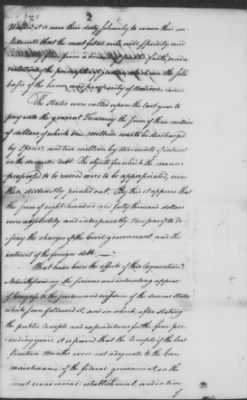 2
States, it is now their duty solemnly to warn their con
stituents that the most fatal evils will speedily and
from a breach of public faith, and a
violation of the principles of justice which are the solid
basis of the honor and prosperity of Nations.
The States were called upon the last year to
pay into the general Treasury the sum of three millions
of dollars, of which one million was to be discharged
by specie, and two million by discounts of interest
on the domestic debt. The objects for which the monies
proposed to be raised were to be appropriated, were
then distinctly pointed out. By this it appears that
the sum of eight hundred and forty thousand dollars
was absolutely and indispensably necessary to de
fray the charges of the Civil government and the
interest of the foreign debt.
What have been the effects of this requisition?
Notwithstanding the serious and interesting appeal
of Congress to the justice and wisdom of the several States
which soon followed it, and in which, after stating
the public receipts and expenditures for the four pre
ceding years, it is proved that the receipts of the last
fourteen Months were not adequate to the bare
maintenance of the federal government on the
most economical establishment, and in time
of